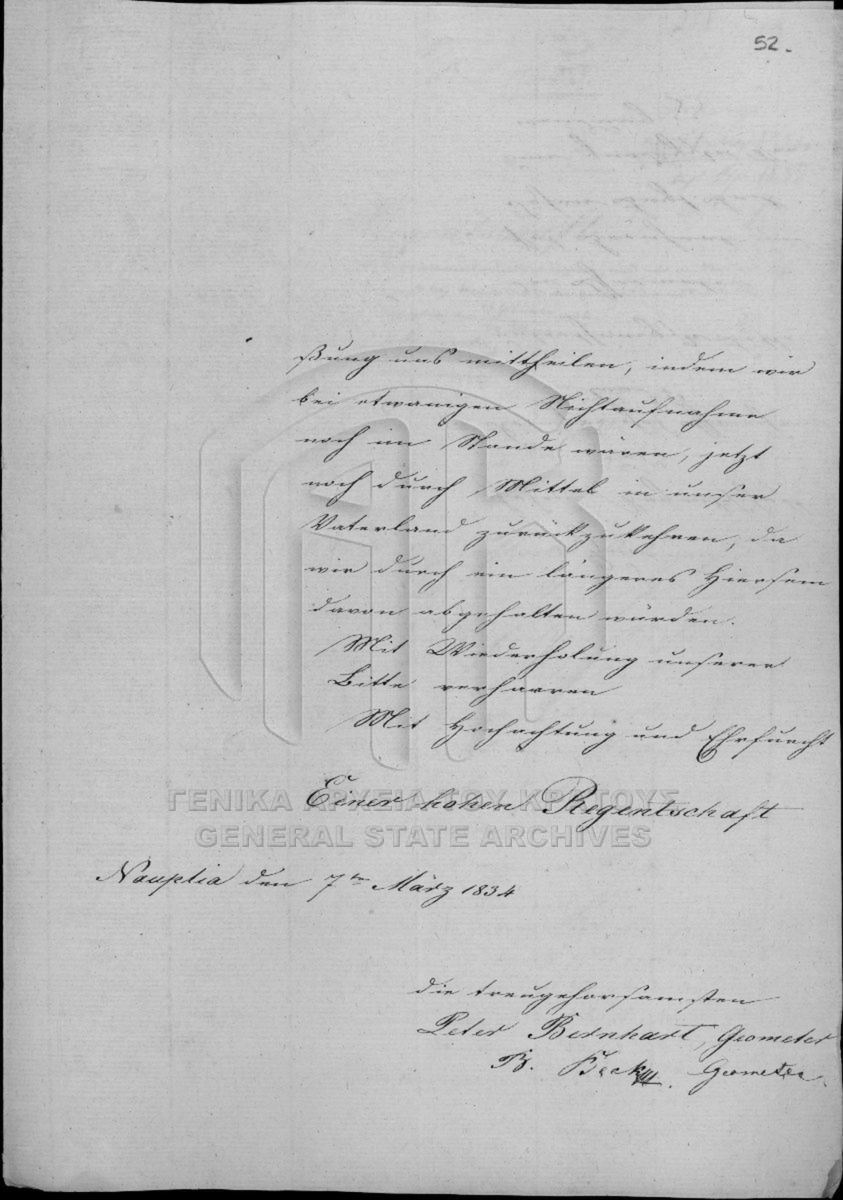 52.
ßung uns mittheilen, indem wir
bei etwanigen Nichtaufnahme
noch im Stande wären, jetzt
noch durch Mittel in unser
Vaterland zurückzukehren, da
wir durch ein längeres Hiersein
davon abgehalten würden.
Mit Wiederholung unserer
Bitte verharren
Mit Hochachtung und Ehrfurcht
Einer hohen Regentschaft
ΓΕΝΙΚΑ ΑΡΧΕΙΑ ΤΟΥ ΚΡΑΤΟΥΣ
GENERAL STATE ARCHIVES
Nauplia den 7ten März 1834
die treugehorsamsten
Peter Bernhart, Geometer
Beck, Geometer.